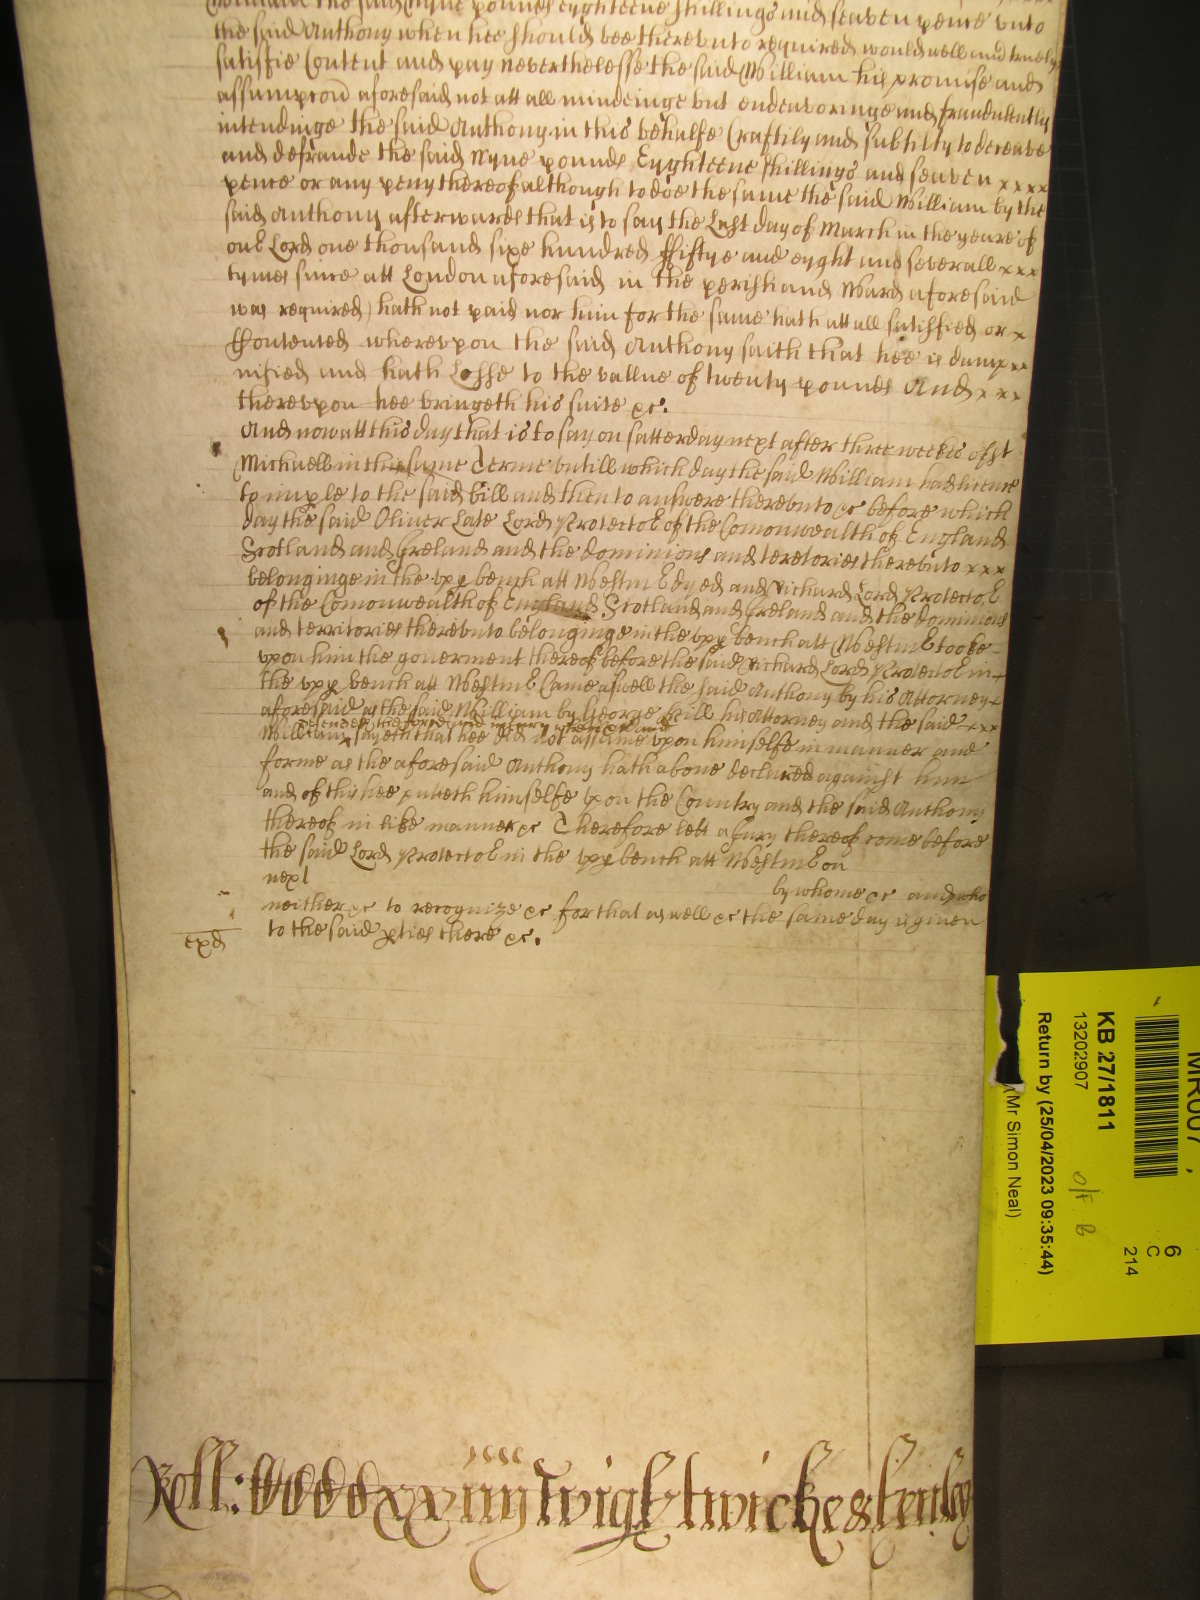 the said Nyne pounds eyghteene shillings and seaven pence vnto
the said Anthony when hee should bee therevnto required would well and truely
satisfie Content and pay neverthelesse the said William his promise and
assumpcon aforesaid not att all mindeinge but endeavoringe and fraudulently
intendinge the said Anthony in this behalfe Craftily and subtilly to deceave
and defraude the said Nyne pounds Eyghteene shillings and seaven x x x x
pence or any peny thereof although to doe the same the said William by the
said Anthony afterwards that is to say the Last day of March in the yeare of
our Lord one thousand sixe hundred ffiftye and eyght and severall x x x
tymes since att London aforesaid in the perish and Ward aforesaid
was required) hath not paid nor him for the same hath att all satisfied or x
Contented wherevpon the said Anthony saith that hee is damp x x
nified and hath Losse to the vallue of twenty pounds And x x x
therevpon hee bringeth his suite &c.
And now att this day that is to say on satterday next after three weekes of st
Michaell in this same Terme vntill which day the said William had licence
to imple to the said bill and then to answere therevnto &c before which
day the said Oliver Late Lord Protector of the Comonwealth of England
Scotland and Ireland and the dominions and teretories therevnto x x x
belonginge in the vpp bench att Westmr dyed and Richard Lord Protector
of the Comonwealth of England Scotland and Ireland and the dominions
and territories therevnto belonginge in the vpp bench att Westmr tooke
vpon him the goverment thereof before the said Richard Lord Protector in
the vpp bench att Westmr Came aswell the said Anthony by his Attorney
aforesaid as the said William by George Hill his Attorney and the said x x x
defendeth the force and iniury when &c and
William sayeth that hee did not assume vpon himselfe in manner and
forme as the aforesaid Anthony hath above declared against him
and of this hee putteth himselfe vpon the Country and the said Anthony
thereof in like manner &c Therefore lett a Jury thereof come before
the said Lord Protector in the vpp bench att Westmr on
next
by whome &c and who
neither &c to recognize &c for that aswell &c the same day is given
to the said pties there &c.
exd
Roll: xxviiij Wightwicke &
MR007
6
C
214
KB 27/1811
13202907
O/F B
Return by (25/04/2023 09:35:44)
(Mr Simon Neal)